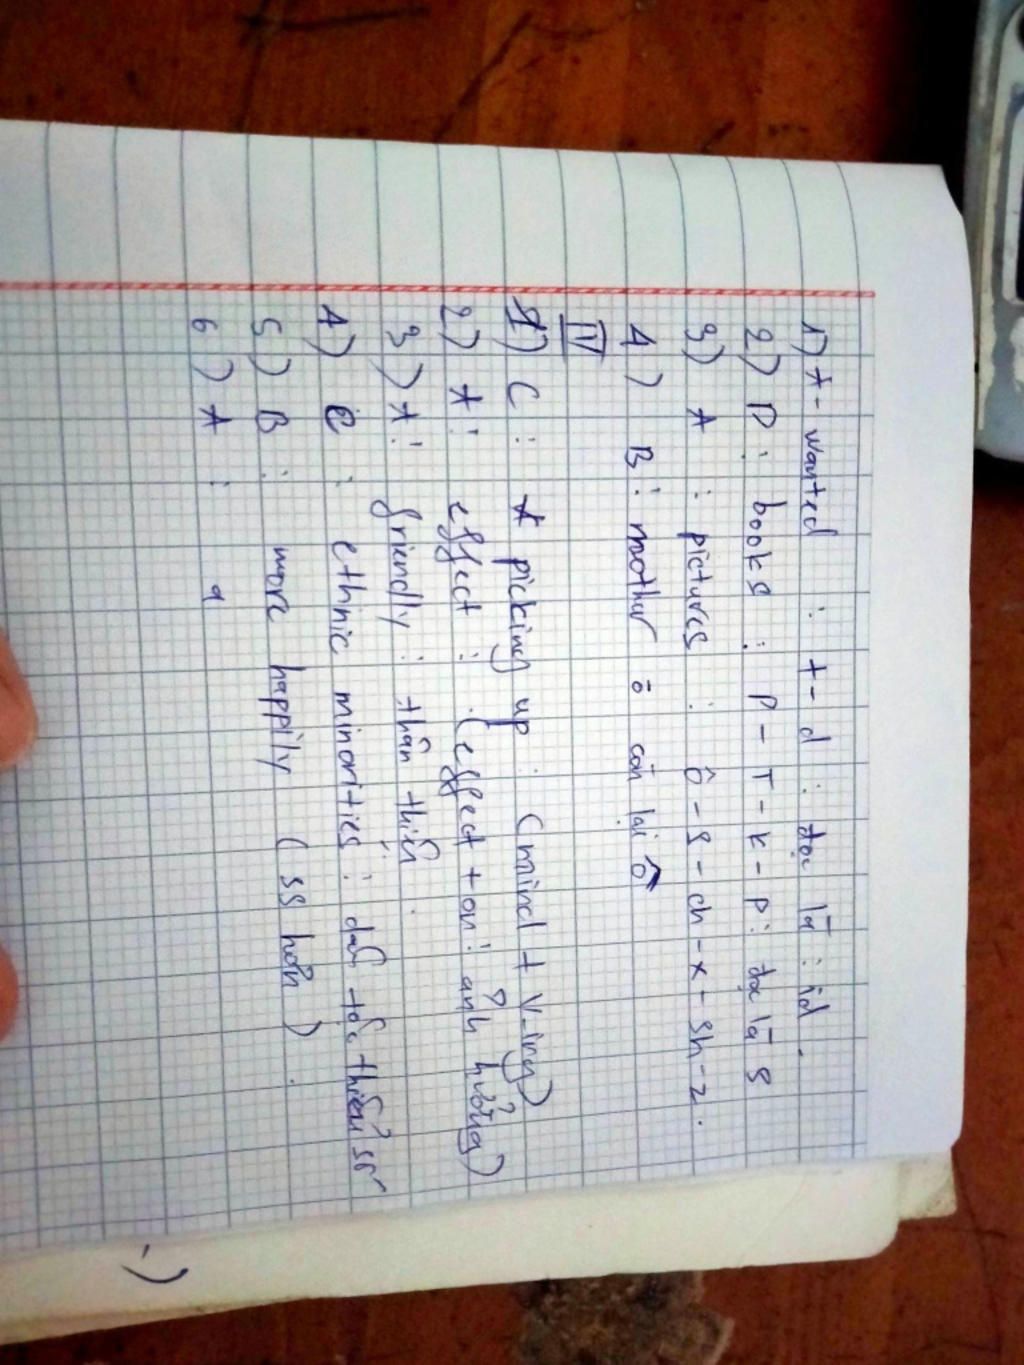 1) A - wanted : t - d : đọc là : id.
2) D : books : P - T - K - P : đọc là s
3) A : pictures : ô - s - ch - x - sh - z.
4) B : mother ō còn lại ô
IV
1) C : picking up : (mind + V-ing)
2) A : effect : (effect + on : ảnh hưởng)
3) A : friendly : thân thiện.
4) C : ethnic minorities : dân tộc thiểu số
5) B : more happily (ss hơn).
6) A : a